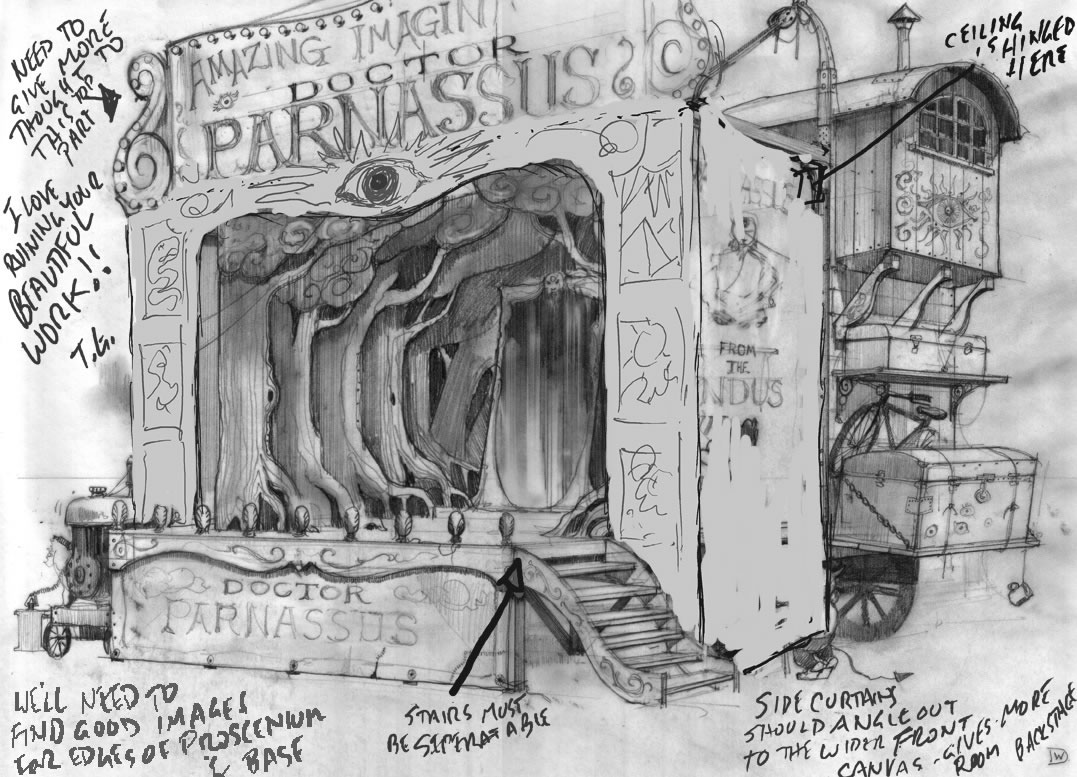 NEED TO
GIVE MORE
THOUGHT TO
THIS TOP
PART
I LOVE
RUINING YOUR
BEAUTIFUL
WORK!!
T.G.
AMAZING IMAGIN
DOCTOR
PARNASSUS
CEILING
IS HINGED
HERE
FROM
THE
NDUS
DOCTOR
PARNASSUS
WE'LL NEED TO
FIND GOOD IMAGES
FOR EDGES OF PROSCENIUM
& BASE
STAIRS MUST
BE SEPERATABLE
SIDE CURTAINS
SHOULD ANGLE OUT
TO THE WIDER FRONT
CANVAS - GIVES MORE
ROOM BACKSTAGE